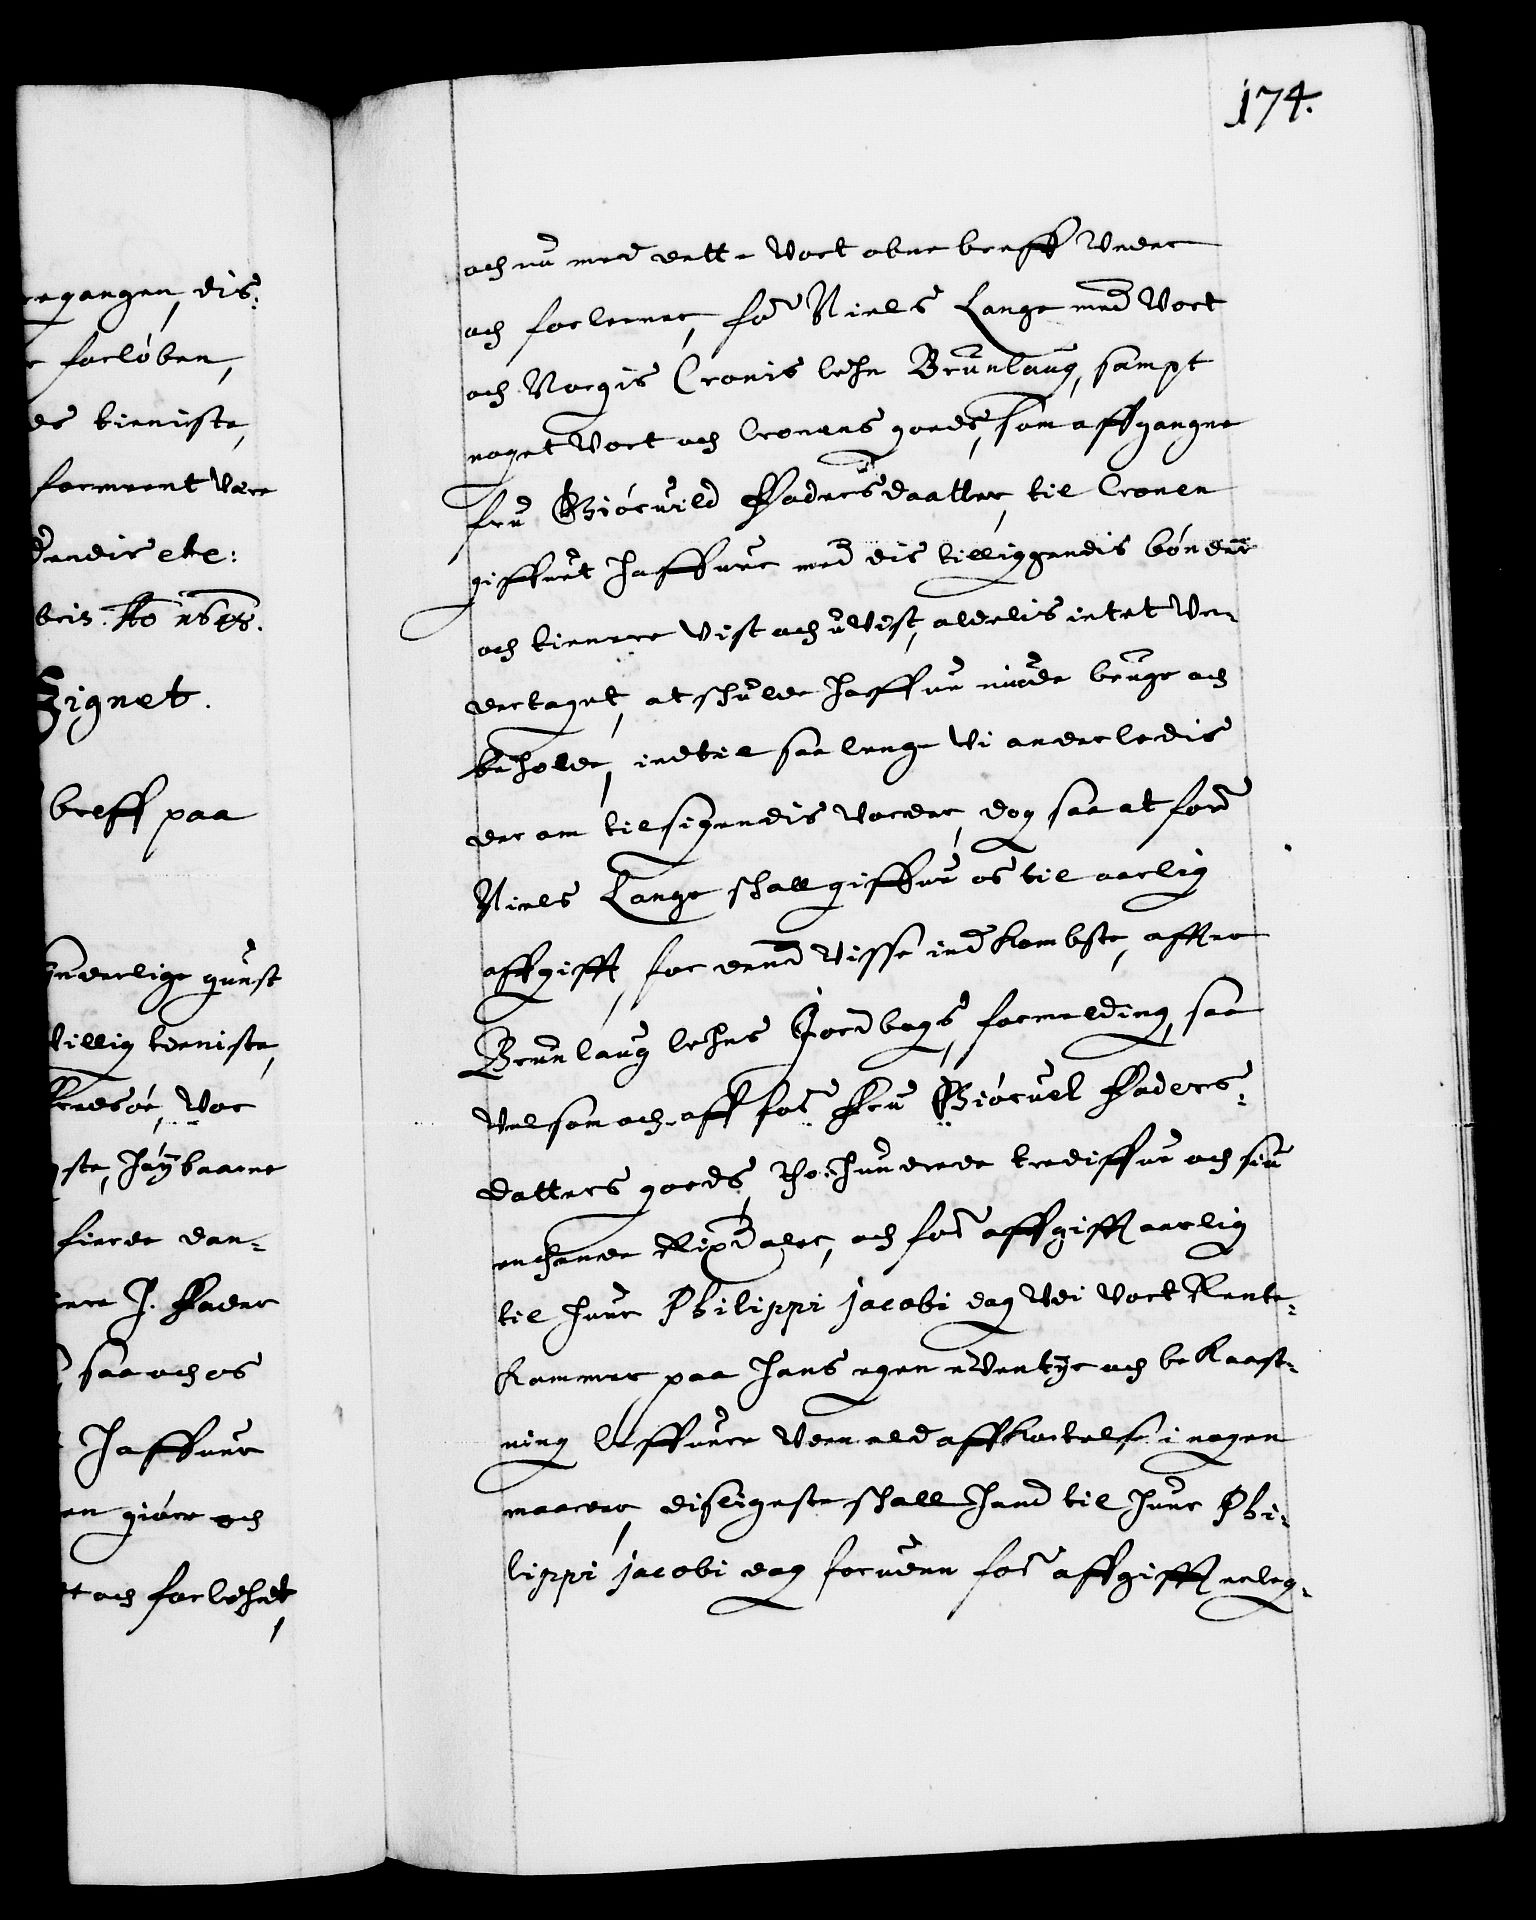 174.
egangen, dis¬
forlóben,
de tieniste,
formeent være
dendis etc:
Signet.
breff paa
ynderlige gunst
villig tieniste,
vor
ste, Høybaarne
fierde dan¬
J. Fader
saa och os
Haffuer
en giöre och
och forlehnt,
och nu med dette vort obne breff under
och forlener, for: Niels Lange med vort
och Norgis Cronis lehn Brunlaug, sampt
noget vort och Cronens goeds, som affgangne
fru Giöruild Fadersdaatter, til Cronen
giffuet haffuer med dis tilliggendis bónder
och tienere vist och uvist, aldelis intet Un¬
dertaget, at schulde haffue niude bruge och
beholde, indtil saa lenge vi anderledis
der om tilsigendis vorder, dog saa at for:
Niels Lange schall giffue os til aarlig
affgifft, for dend visse indkombste, effter
Brunlaug lehns Jordbogs, formelding, saa
vel som och aff for: Fru Giöruel Faders¬
datters goeds, tho hundrede trediffue och siu
enchende Rixdaler, och for: affgifft aarlig
til huer Philippi Jacobi dag udi vort Rente¬
kammer, paa hans egen euentyr och bekaast¬
ning leffuere uden ald affkortelse i nogen
maader, disligeste schall hand til huer Phi¬
lippi Jacobi dag foruden for: affgifft erleg¬